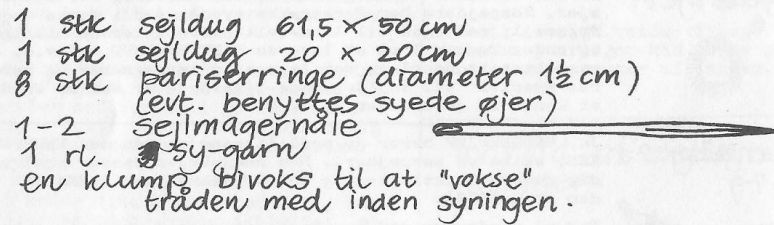 1 stk sejldug 61,5 × 50 cm
1 stk sejldug 20 × 20 cm
8 stk pariserringe (diameter 1½ cm)
(evt. benyttes syede øjer)
1-2 sejlmagernåle
1 rl. sy-garn
en klump bivoks til at "vokse"
tråden med inden syningen.